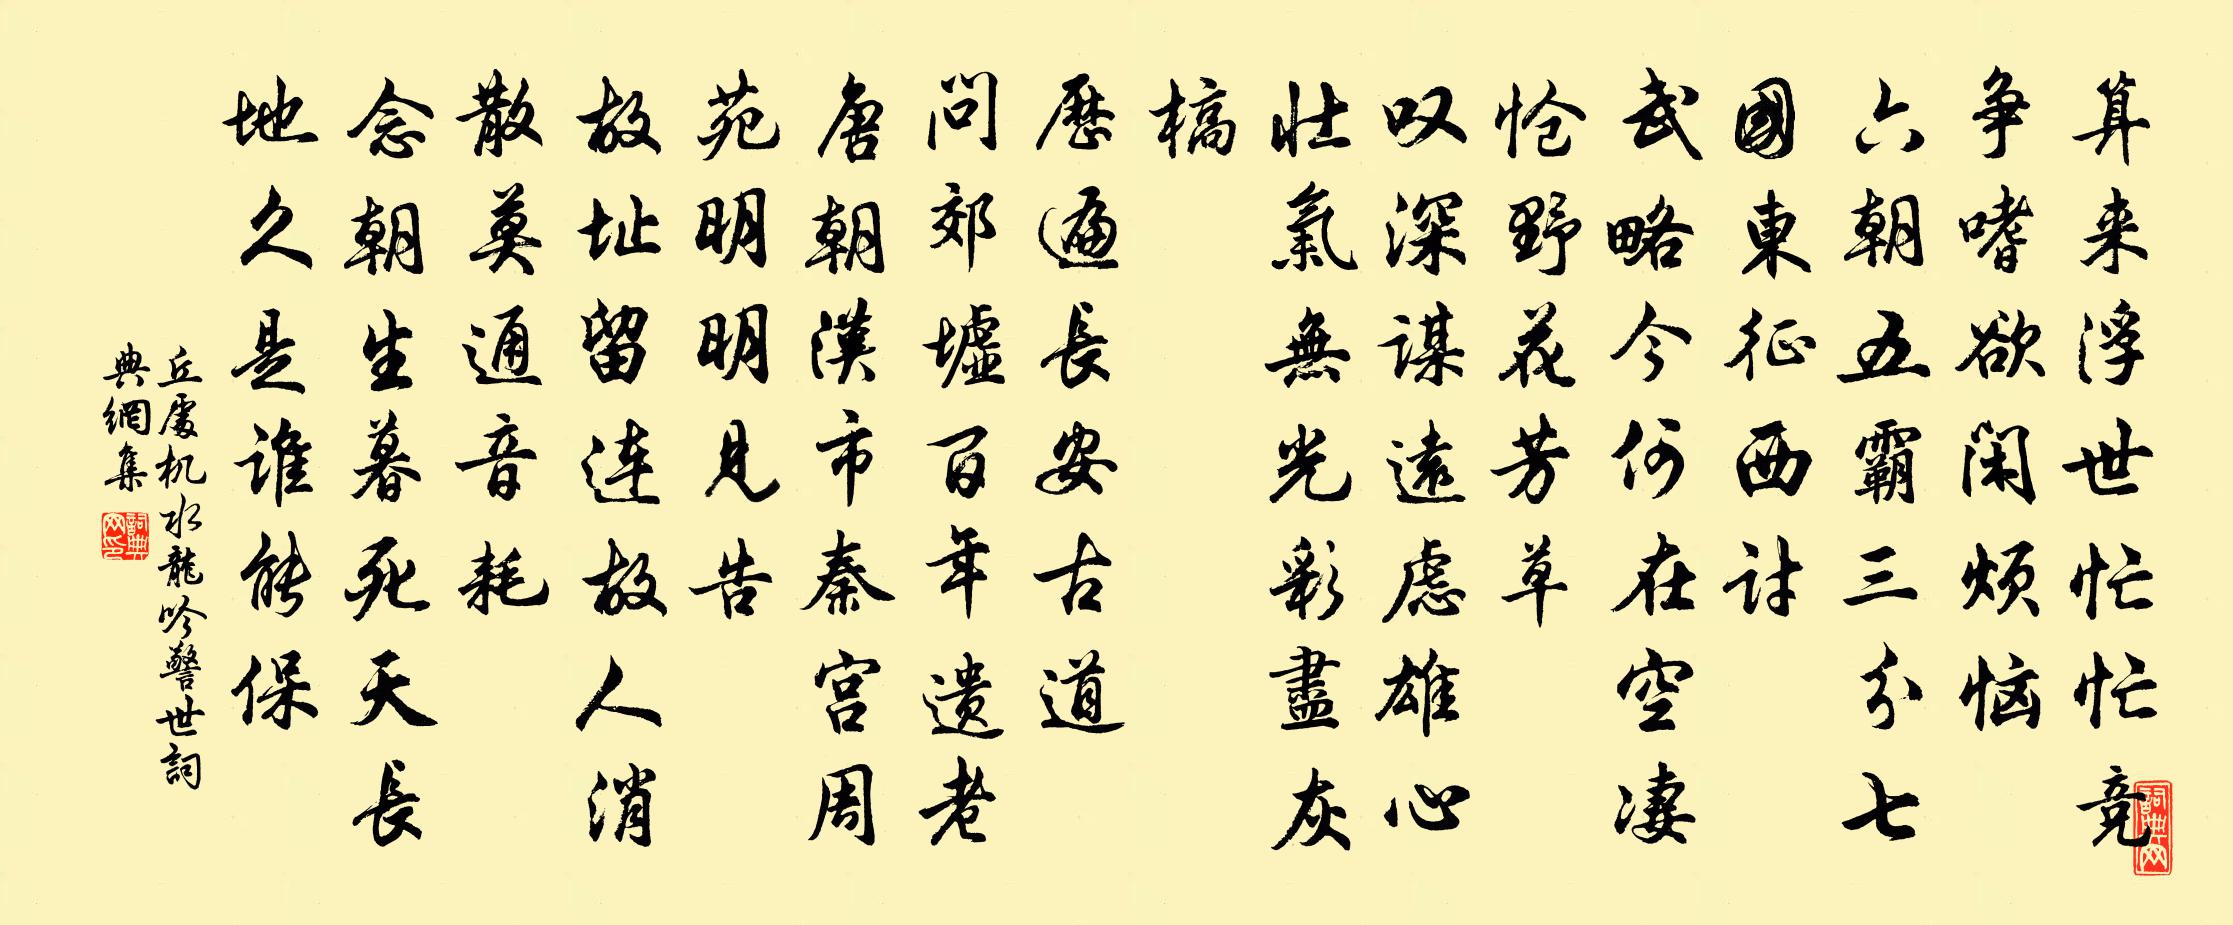 算来浮世忙忙竞
争嗜欲闲烦恼
六朝五霸三分七
國東征西討
武略今何在空凄
怆野花芳草
叹深謀遠虑雄心
壮氣無光彩盡灰
槁
歷遍長安古道
问郊墟百年遗老
唐朝漢市秦宫周
苑明明见告
故址留連故人消
散莫通音耗
念朝生暮死天長
地久是谁能保
丘處机水龍吟警世詞
典網集
詞典网印
詞典网